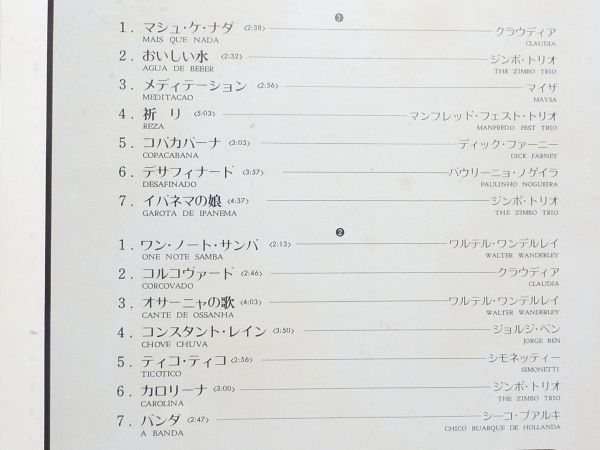 ❶
1. マシュ・ケ・ナダ 〈2:38〉 クラウディア
MAIS QUE NADA CLAUDIA
2. おいしい水 〈2:32〉 ジンボ・トリオ
AGUA DE BEBER THR ZIMBO TRIO
3. メディテーション 〈2:56〉 マイザ
MEDITACAO MAYSA
4. 祈り 〈5:03〉 マンフレッド・フェスト・トリオ
REZA MANFREDO FEST TRIO
5. コパカバーナ 〈3:05〉 ディック・ファーニー
COPACABANA DICK FARNEY
6. デサフィナード 〈3:57〉 パウリーニョ・ノゲイラ
DESAFINADO PAULINHO NOGUEIRA
7. イパネマの娘 〈4:37〉 ジンボ・トリオ
GAROTA DE IPANEMA THE ZIMBO TRIO
❷
1. ワン・ノート・サンバ 〈2:13〉 ワルテル・ワンデルレイ
ONE NOTE SAMBA WALTER WANDERLEY
2. コルコヴァード 〈2:46〉 クラウディア
CORCOVADO CLAUDIA
3. オサーニャの歌 〈4:03〉 ワルテル・ワンデルレイ
CANTE DE OSSANHA WALTER WANDERLEY
4. コンスタント・レイン 〈3:50〉 ジョルジ・ベン
CHOVE CHUVA JORGE BEN
5. ティコ・ティコ 〈2:56〉 シモネッティー
TICOTICO SIMONETTI
6. カロリーナ 〈3:00〉 ジンボ・トリオ
CAROLINA THE ZIMBO TRIO
7. バンダ 〈2:47〉 シーコ・ブアルキ
A BANDA CHICO BUARQUE DE HOLLANDA